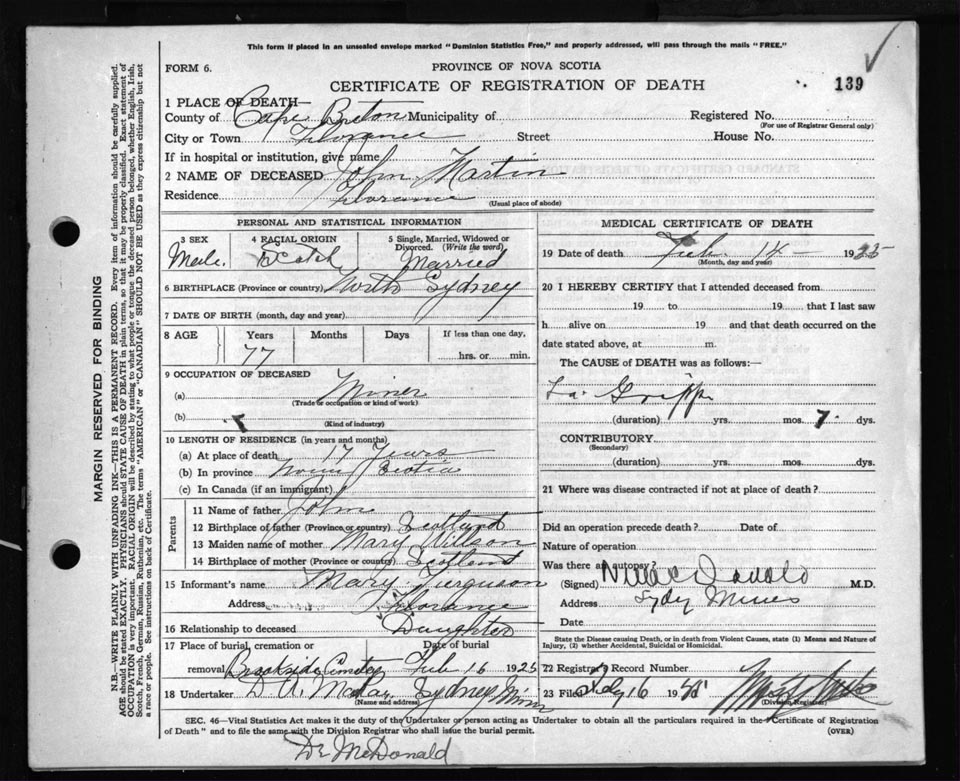 This form if placed in an unsealed envelope marked "Dominion Statistics Free," and properly addressed, will pass through the mails "FREE."
FORM 6.
PROVINCE OF NOVA SCOTIA
CERTIFICATE OF REGISTRATION OF DEATH
139
1 PLACE OF DEATH—
County of Cape Breton Municipality of Registered No.
(For use of Registrar General only)
City or Town Florance Street House No.
If in hospital or institution, give name
2 NAME OF DECEASED John Martin
Residence Florance
(Usual place of abode)
PERSONAL AND STATISTICAL INFORMATION
3 SEX
Male.
4 RACIAL ORIGIN
Scotch
5 Single, Married, Widowed or Divorced. (Write the word)
Married
6 BIRTHPLACE (Province or country) North Sydney
7 DATE OF BIRTH (month, day and year)
8 AGE Years Months Days If less than one day,
77 hrs. or min.
9 OCCUPATION OF DECEASED
(a) Miner
(Trade or occupation or kind of work)
(b)
(Kind of industry)
10 LENGTH OF RESIDENCE (in years and months)
(a) At place of death 17 Years
(b) In province Nova Scotia
(c) In Canada (if an immigrant)
Parents
11 Name of father John
12 Birthplace of father (Province or country) Scotland
13 Maiden name of mother Mary Willson
14 Birthplace of mother (Province or country) Scotland
15 Informant's name Mary Furguson
Address Florance
16 Relationship to deceased Daughter
17 Place of burial, cremation or removal Date of burial
Brookside Cemetery Feb 16 1925
18 Undertaker D A. Sydney Mines
(Name and address)
MEDICAL CERTIFICATE OF DEATH
19 Date of death Feb. 14 1925
(Month, day and year)
20 I HEREBY CERTIFY that I attended deceased from
19 to 19 that I last saw
h alive on 19 and that death occurred on the
date stated above, at m.
The CAUSE of DEATH was as follows:—
La Grippe
(duration) yrs. mos. 7 dys.
CONTRIBUTORY
(Secondary)
(duration) yrs. mos. dys.
21 Where was disease contracted if not at place of death?
Did an operation precede death? Date of
Nature of operation
Was there an autopsy?
(Signed) McDonald M.D.
Address Sydy Mines
Date
State the Disease causing Death, or in death from Violent Causes, state (1) Means and Nature of
Injury, (2) whether Accidental, Suicidal or Homicidal.
22 Registrar's Record Number
23 Filed 16 19
(Division Registrar)
SEC. 46—Vital Statistics Act makes it the duty of the Undertaker or person acting as Undertaker to obtain all the particulars required in the Certificate of Registration
of Death" and to file the same with the Division Registrar who shall issue the burial permit.
(OVER)
Dr McDonald
MARGIN RESERVED FOR BINDING
N.B.—WRITE PLAINLY WITH UNFADING INK—THIS IS A PERMANENT RECORD. Every item of information should be carefully supplied.
AGE should be stated EXACTLY. PHYSICIANS should STATE CAUSE OF DEATH in plain terms, so that it may be properly classified. Exact statement of
OCCUPATION is very important. RACIAL ORIGIN will be described by stating to what people or tongue the deceased person belonged, whether English, Irish,
Scotch, French, German, Russian, Ruthenian, etc. The terms "AMERICAN" or "CANADIAN" SHOULD NOT BE USED as they express citizenship but not
a race or people. See instructions on back of Certificate.